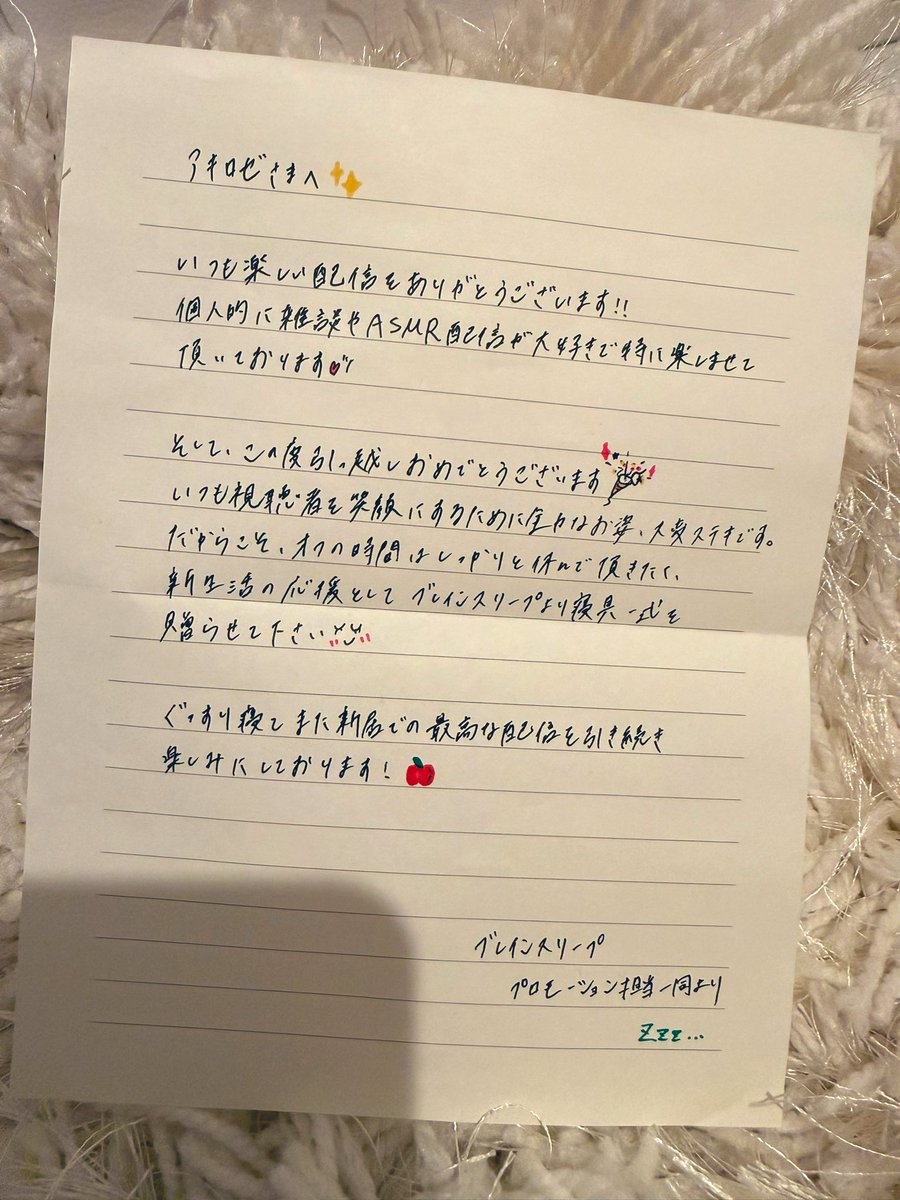 アキロゼさまへ
いつも楽しい配信をありがとうございます!!
個人的に雑談やASMR配信が大好きで特に楽しませて
頂いております
そして、この度引っ越しおめでとうございます
いつも視聴者を笑顔にするために全力なお姿、大変ステキです。
だからこそ、オフの時間はしっかりと休んで頂きたく、
新生活の応援として ブレインスリープより寝具一式を
贈らせて下さい
ぐっすり寝てまた新居での最高な配信を引き続き
楽しみにしております!
ブレインスリープ
プロモーション担当一同より
Zzz...